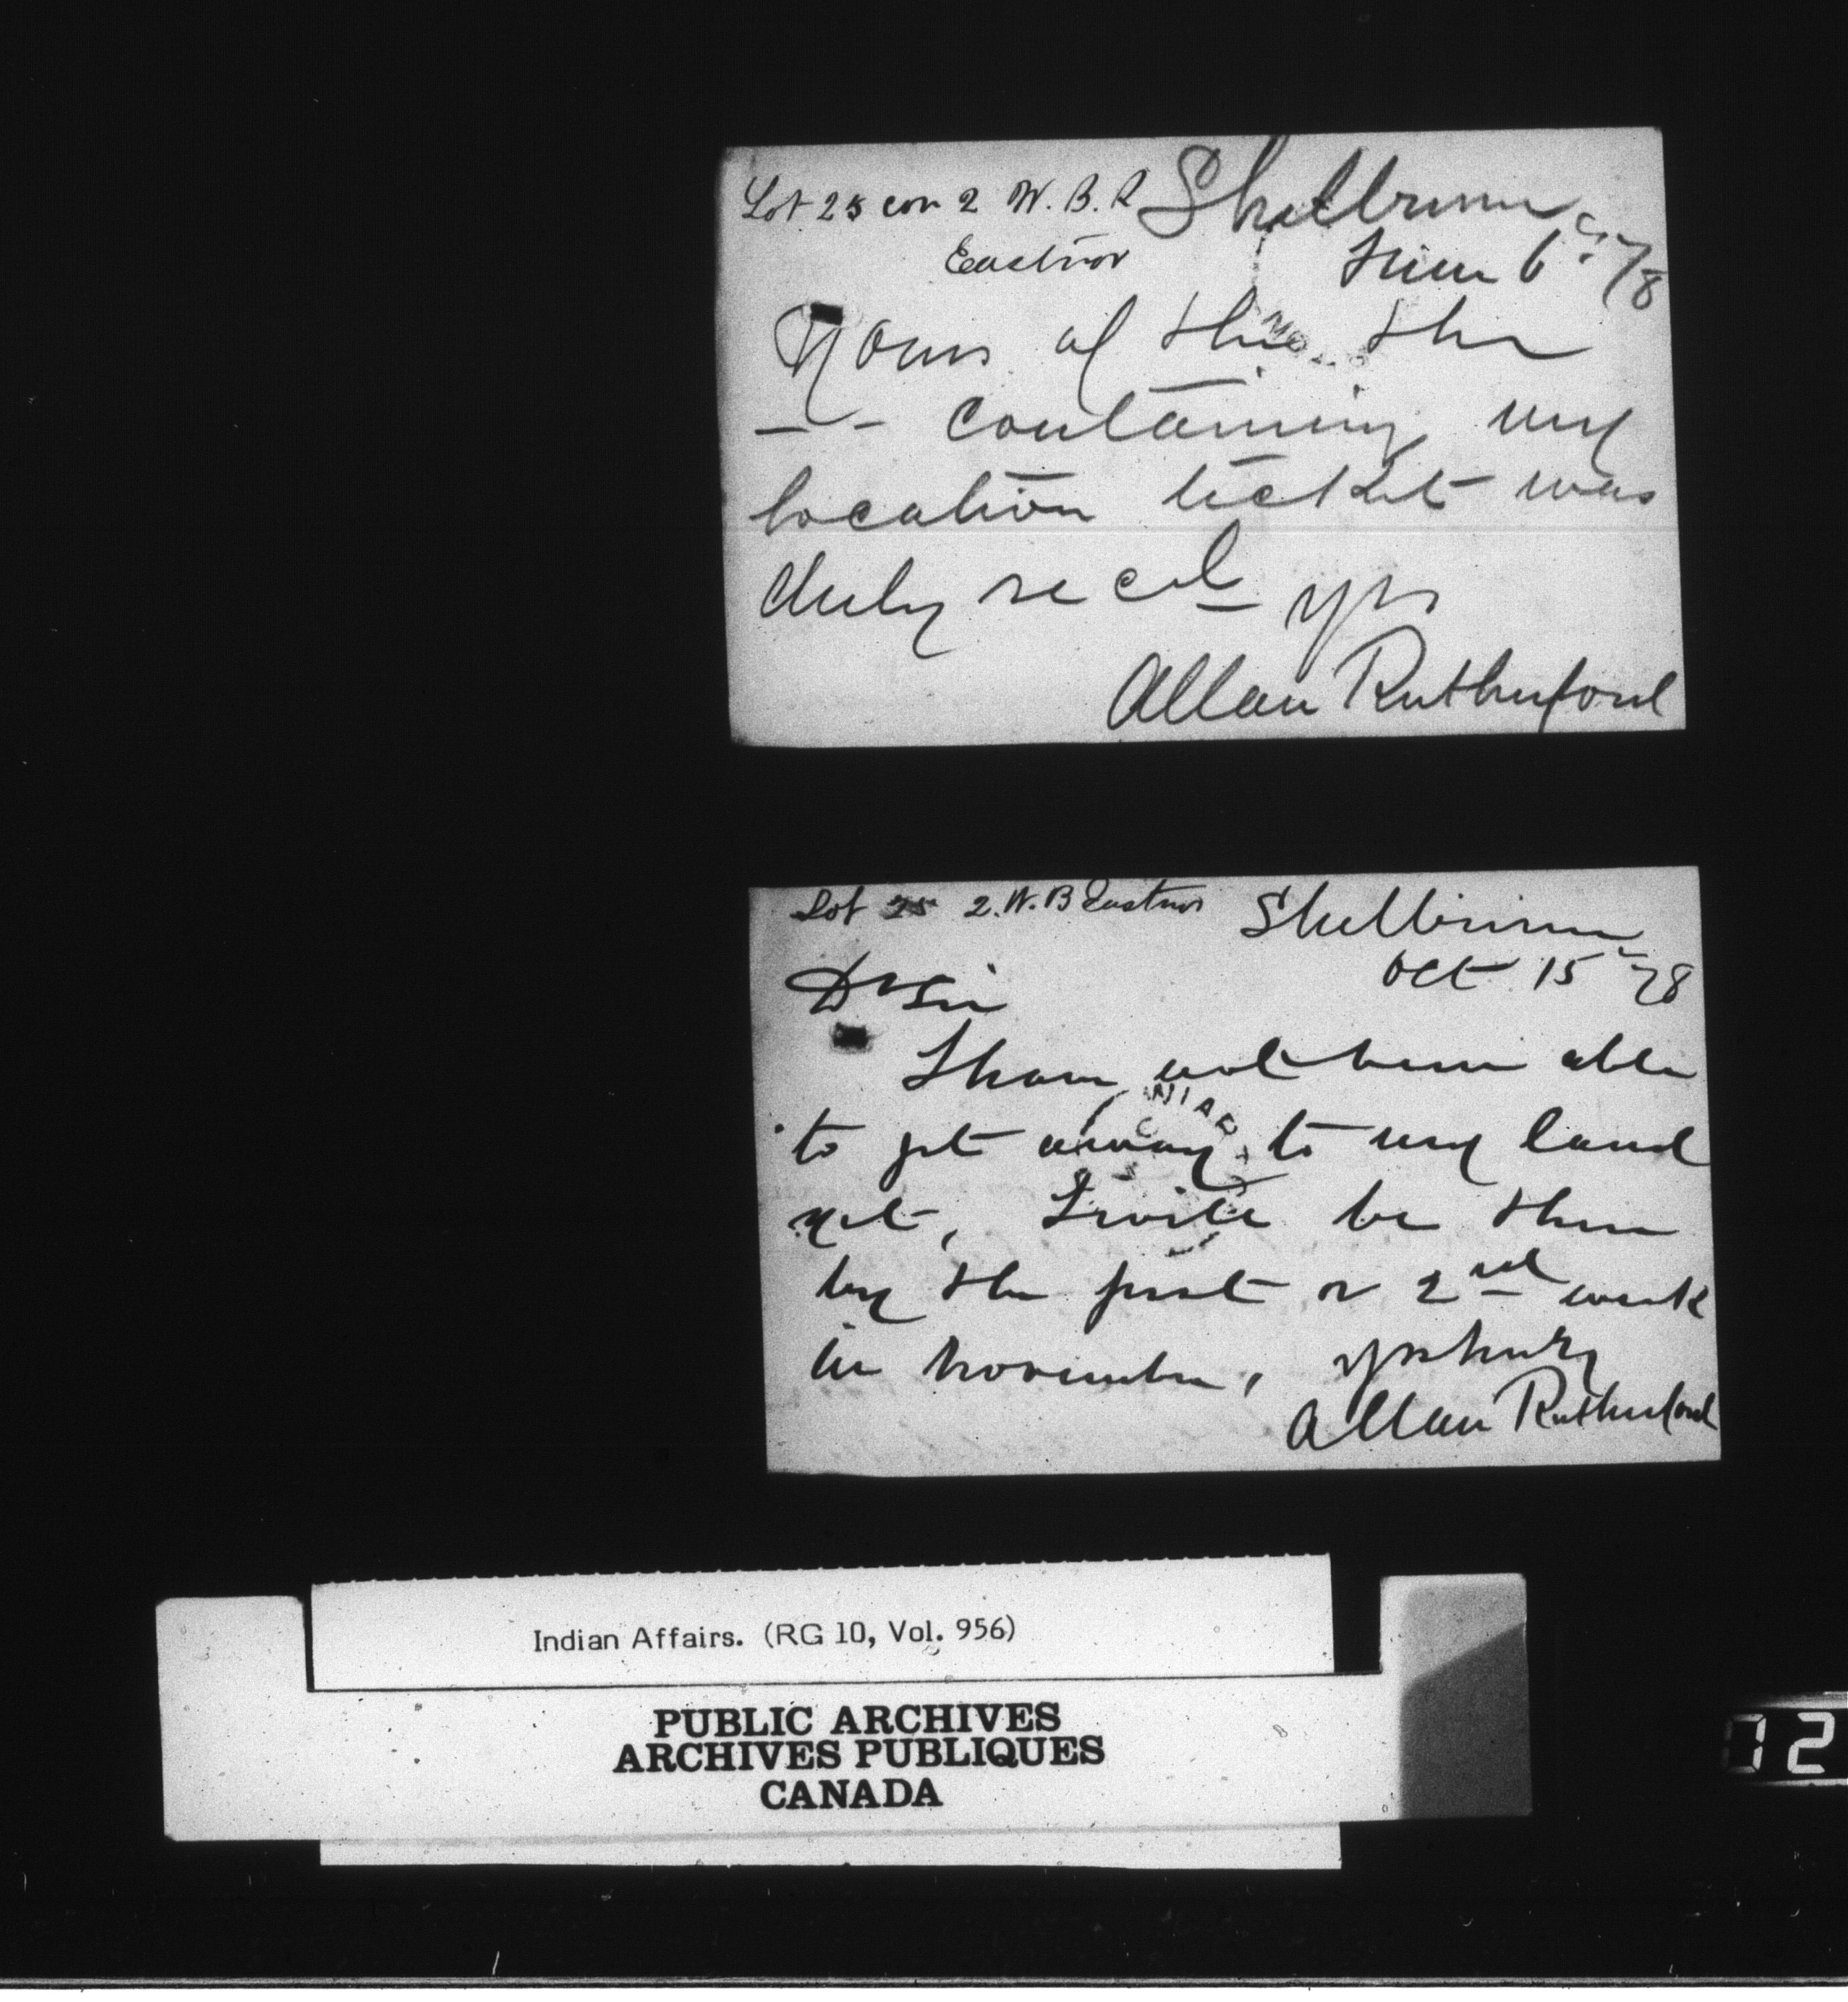 Lot 25 con 2 W.B.R Shelburne
Eastnor June 6th /78
Yours of the the
— - containing my
location ticket was
duly recd yrs
Allan Rutherford
Lot 25 2.W.B Eastnor Shelburne
Oct 15 78
Dr Sir
I have not been able
to get away to my land
yet, I will be there
by the first or 2nd week
in November, yrs truly
Allan Rutherford
Indian Affairs. (RG 10, Vol. 956)
PUBLIC ARCHIVES
ARCHIVES PUBLIQUES
CANADA